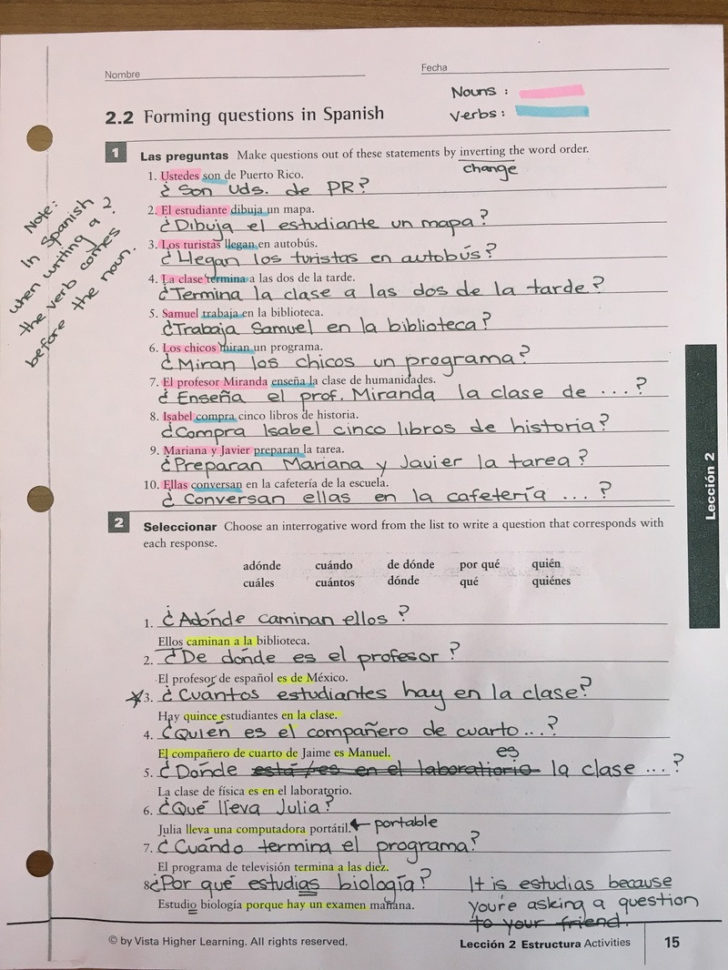 Nombre
Fecha
Nouns :
2.2 Forming questions in Spanish
Verbs :
1 Las preguntas Make questions out of these statements by inverting the word order.
change
1. Ustedes son de Puerto Rico.
¿Son Uds. de PR?
2. El estudiante dibuja un mapa.
¿Dibuja el estudiante un mapa?
3. Los turistas llegan en autobús.
¿Llegan los turistas en autobús?
4. La clase termina a las dos de la tarde.
¿Termina la clase a las dos de la tarde?
5. Samuel trabaja en la biblioteca.
¿Trabaja Samuel en la biblioteca?
6. Los chicos miran un programa.
¿Miran los chicos un programa?
7. El profesor Miranda enseña la clase de humanidades.
¿Enseña el prof. Miranda la clase de ...?
8. Isabel compra cinco libros de historia.
¿Compra Isabel cinco libros de historia?
9. Mariana y Javier preparan la tarea.
¿Preparan Mariana y Javier la tarea?
10. Ellas conversan en la cafetería de la escuela.
¿Conversan ellas en la cafetería ...?
Note:
In Spanish
when writing a ?
the verb comes
before the noun.
Lección 2
2 Seleccionar Choose an interrogative word from the list to write a question that corresponds with
each response.
adónde cuándo de dónde por qué quién
cuáles cuántos dónde qué quiénes
1. ¿Adónde caminan ellos?
Ellos caminan a la biblioteca.
2. ¿De dónde es el profesor?
El profesor de español es de México.
3. ¿Cuántos estudiantes hay en la clase?
Hay quince estudiantes en la clase.
4. ¿Quién es el compañero de cuarto...?
El compañero de cuarto de Jaime es Manuel.
es
5. ¿Dónde está/es en el laboratiorio la clase ...?
La clase de física es en el laboratorio.
6. ¿Qué lleva Julia?
Julia lleva una computadora portátil. portable
7. ¿Cuándo termina el programa?
El programa de televisión termina a las diez.
8. ¿Por qué estudias biología? It is estudias because
Estudio biología porque hay un examen mañana. you're asking a question
to your friend.
© by Vista Higher Learning. All rights reserved. Lección 2 Estructura Activities 15